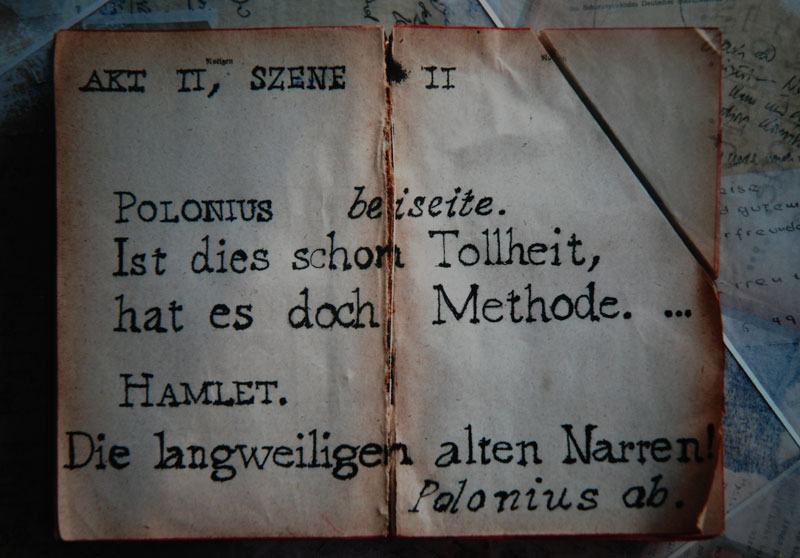 Notizen
AKT II, SZENE II
POLONIUS beiseite.
Ist dies schon Tollheit,
hat es doch Methode. ...
HAMLET.
Die langweiligen alten Narren!
Polonius ab.